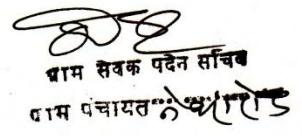 ग्राम सेवक पदेन सचिव
ग्राम पंचायत